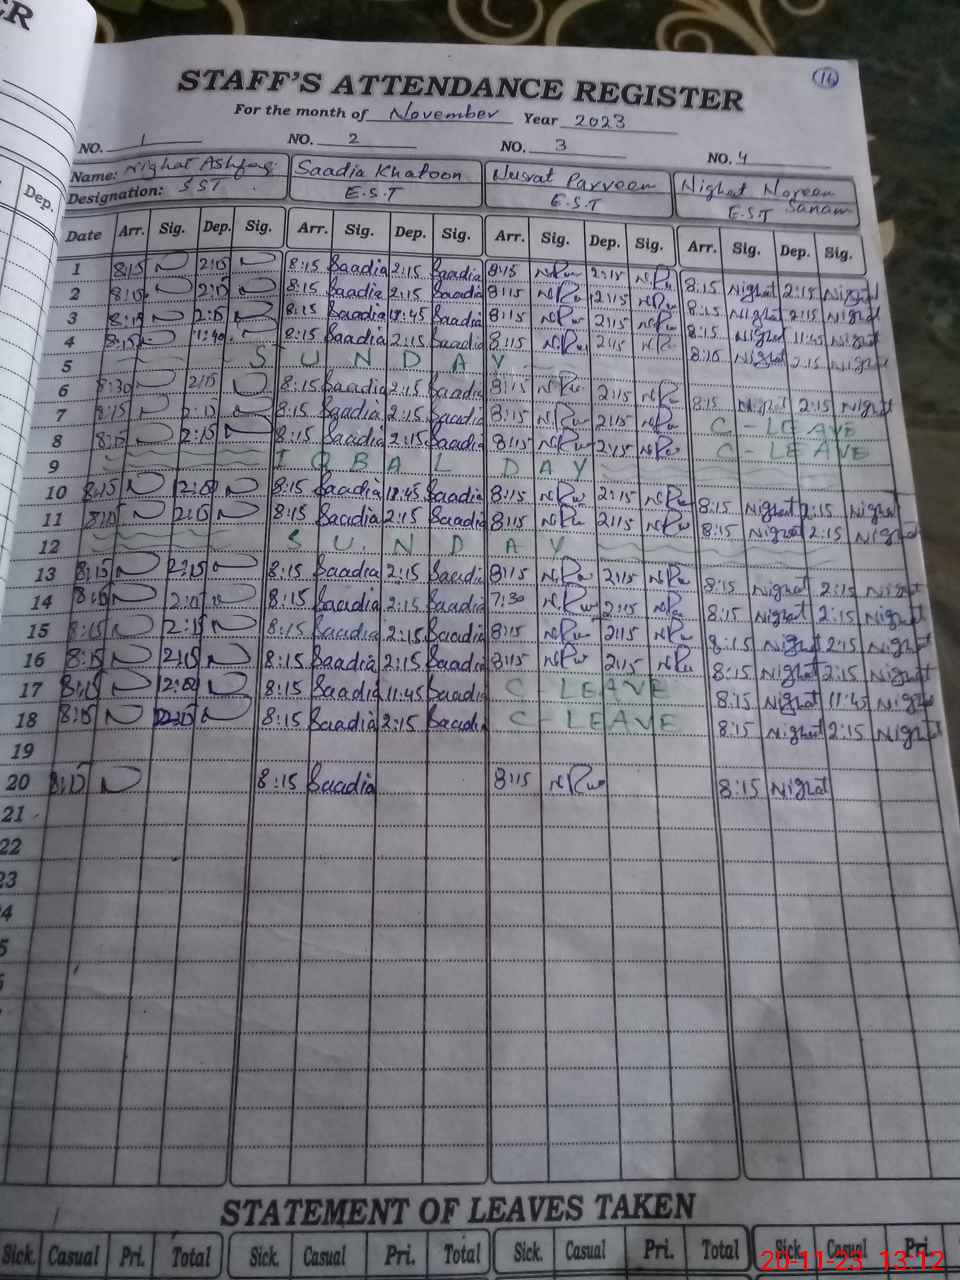 ER
16
STAFF'S ATTENDANCE REGISTER
For the month of November Year 2023
NO. 1 NO. 2 NO. 3 NO. 4
Dep. Name: Nighat Ashfaq Saadia Khatoon Nusrat Parveen Nighat Noreen Sanam
Designation: SST E.S.T E.S.T E.S.T
Date Arr. Sig. Dep. Sig. Arr. Sig. Dep. Sig. Arr. Sig. Dep. Sig. Arr. Sig. Dep. Sig.
1 8:15 2:15 8:15 Saadia 2:15 Saadia 8:15 2:15 8:15 Nighat 2:15 Nighat
2 8:15 2:15 8:15 Saadia 2:15 Saadia 8:15 2:15 8:15 Nighat 2:15 Nighat
3 8:15 8:15 Saadia Saadia 8:15 2:15 8:15 Nighat 11:45 Nighat
4 8:15 8:15 Saadia 2:15 Saadia 8:15 2:15 8:15 Nighat 2:15 Nighat
5 SUNDAY
6 8:30 2:15 8:15 Saadia 2:15 Saadia 8:15 2:15 8:15 Nighat 2:15 Nighat
7 8:15 2:15 8:15 Saadia 2:15 Saadia 8:15 2:15 C-LEAVE
8 8:15 2:15 8:15 Saadia 2:15 Saadia 8:15 2:15 C-LEAVE
9 IQBAL DAY
10 8:15 8:15 Saadia Saadia 8:15 2:15 8:15 Nighat 2:15 Nighat
11 8:15 2:15 8:15 Saadia 2:15 Saadia 8:15 2:15 8:15 Nighat 2:15 Nighat
12 SUNDAY
13 8:15 2:15 8:15 Saadia 2:15 Saadia 8:15 2:15 8:15 Nighat 2:15 Nighat
14 8:15 8:15 Saadia 2:15 Saadia 7:30 2:15 8:15 Nighat 2:15 Nighat
15 8:15 2:15 8:15 Saadia 2:15 Saadia 8:15 2:15 8:15 Nighat 2:15 Nighat
16 8:15 2:15 8:15 Saadia 2:15 Saadia 8:15 2:15 8:15 Nighat 2:15 Nighat
17 8:15 8:15 Saadia 11:45 Saadia C LEAVE 8:15 Nighat 11:45 Nighat
18 8:15 8:15 Saadia 2:15 Saadia C-LEAVE 8:15 Nighat 2:15 Nighat
19
20 8:15 8:15 Saadia 8:15 8:15 Nighat
21
22
23
4
5
STATEMENT OF LEAVES TAKEN
Sick. Casual Pri. Total Sick. Casual Pri. Total Sick. Casual Pri. Total Sick. Casual Pri.
20-11-23 13:12